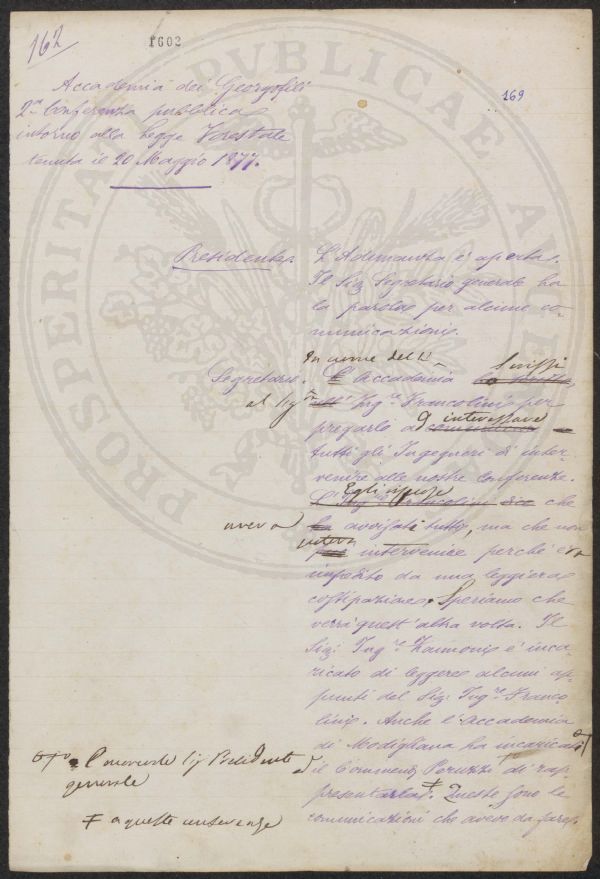 162
1602
169
Accademia dei Georgofili
2ª Conferenza pubblica
intorno alla Legge Forestale
tenuta il 20 Maggio 1877.
Presidente. L'Adunanza è aperta.
Il Sig. Segretario generale ha
la parola per alcune co-
municazioni.
In nome dell'
Segretario. L'Accademia Scrissi
al Sig.r Ing.e Francolini per
pregarlo ad interessare
tutti gli Ingegneri di inter-
venire alle nostre Conferenze.
Egli rispose
L'Ing.e Francolini dice che
aveva avvisati tutti, ma che non
poteva intervenire perché era
impedito da una leggiera
costipazione. Speriamo che
verrà quest'altra volta. Il
Sig. Ing.e Zannoni è inca-
ricato di leggere alcuni ap-
punti del Sig. Ing.e Franco-
lini. Anche l'Accademia
di Modigliana ha incaricato
il Comment. Peruzzi di rap-
presentarla. Queste sono le
comunicazioni che avevo da fare.
l'onorevole Sig. Presidente
generale
a queste conferenze
PROSPERITATI PUBLICAE AUGENDAE